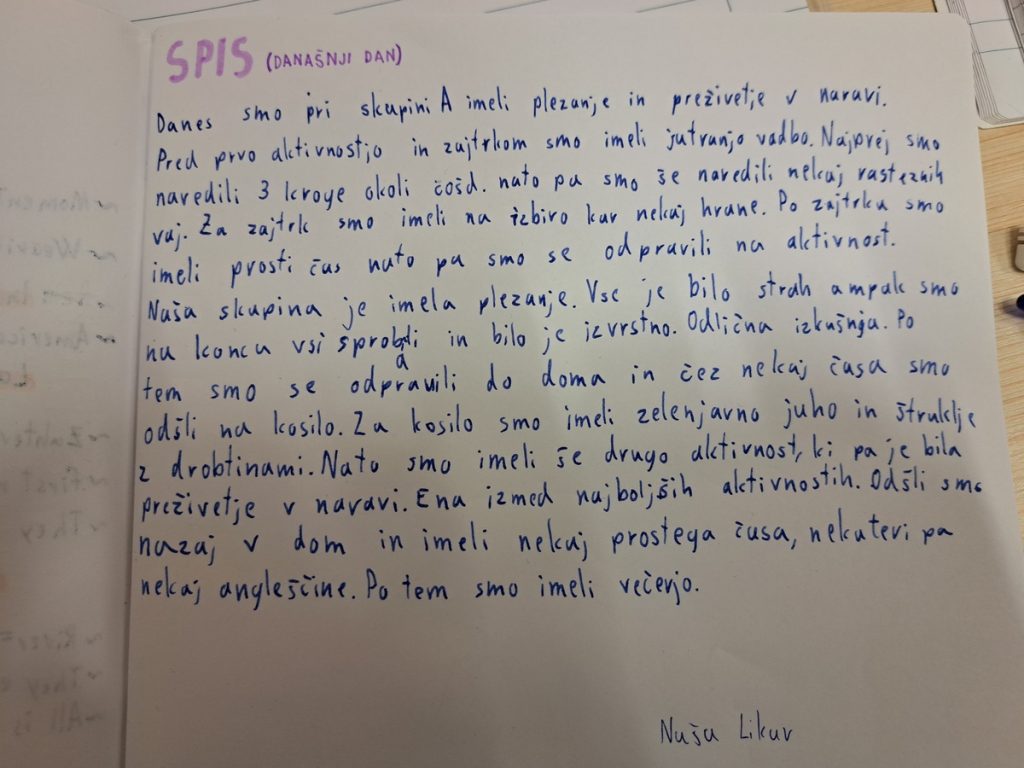 SPIS (DANAŠNJI DAN)
Danes smo pri skupini A imeli plezanje in preživetje v naravi.
Pred prvo aktivnostjo in zajtrkom smo imeli jutranjo vadbo. Najprej smo
naredili 3 kroge okoli čošd. nato pa smo še naredili nekaj razteznih
vaj. Za zajtrk smo imeli na izbiro kar nekaj hrane. Po zajtrku smo
imeli prosti čas nato pa smo se odpravili na aktivnost.
Naša skupina je imela plezanje. Vse je bilo strah ampak smo
na koncu vsi sprobali in bilo je izvrstno. Odlična izkušnja. Po
tem smo se odpravili do doma in čez nekaj časa smo
odšli na kosilo. Za kosilo smo imeli zelenjavno juho in štruklje
z drobtinami. Nato smo imeli še drugo aktivnost, ki pa je bila
preživetje v naravi. Ena izmed najboljših aktivnostih. Odšli smo
nazaj v dom in imeli nekaj prostega časa, nekateri pa
nekaj angleščine. Po tem smo imeli večerjo.
Nuša Likar
~Moment
~Weavi
~America
~First
~They
~River=
~They
~All is